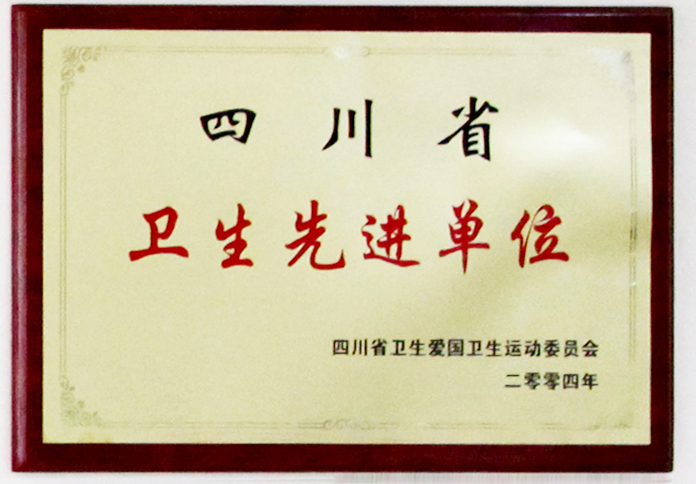 四川省
卫生先进单位
四川省卫生爱国卫生运动委员会
二零零四年